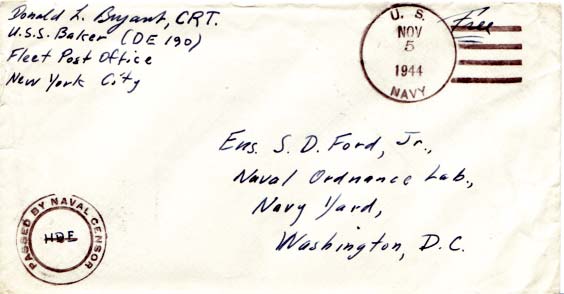 Donald L. Bryant, CRT.
U.S.S. Baker (DE 190)
Fleet Post Office
New York City
U. S.
NOV
5
1944
NAVY
Free
Ens. S. D. Ford, Jr.,
Naval Ordnance Lab.,
Navy Yard,
Washington, D.C.
PASSED BY NAVAL CENSOR